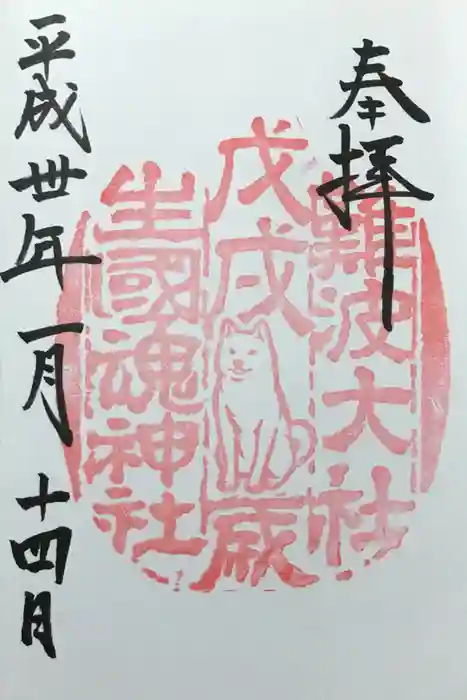 奉拝
難波大社
戊戌歳
生國魂神社
平成卅年一月十四月